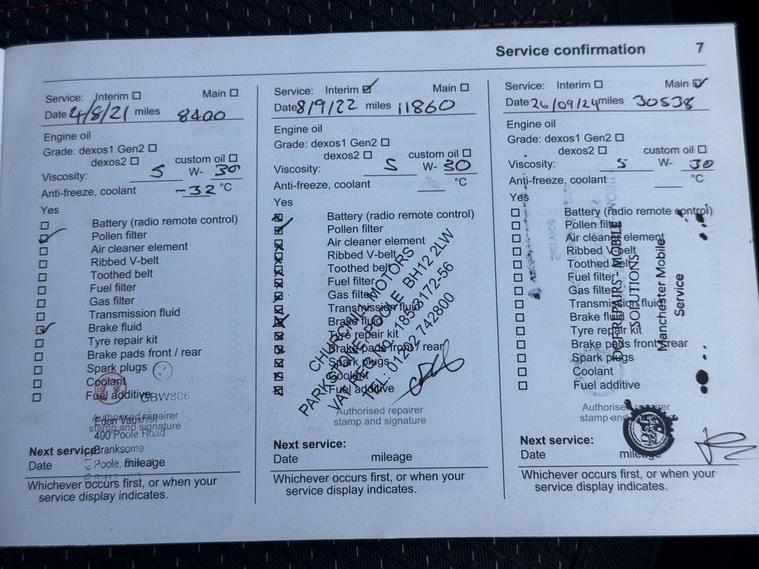 Service confirmation 7
Service: Interim Main
Date 4/8/21 miles 8400
Engine oil
Grade: dexos1 Gen2
dexos2 custom oil
Viscosity: 5 W- 30
Anti-freeze, coolant -32 °C
Yes
Battery (radio remote control)
Pollen filter
Air cleaner element
Ribbed V-belt
Toothed belt
Fuel filter
Gas filter
Transmission fluid
Brake fluid
Tyre repair kit
Brake pads front / rear
Spark plugs
Coolant
Fuel additive
GBW806
Authorised repairer
stamp and signature
Eden Vauxhall
400 Poole Road
Branksome
Poole,
Next service:
Date mileage
Whichever occurs first, or when your
service display indicates.
Service: Interim Main
Date 8/9/22 miles 11860
Engine oil
Grade: dexos1 Gen2
dexos2 custom oil
Viscosity: 5 W- 30
Anti-freeze, coolant °C
Yes
Battery (radio remote control)
Pollen filter
Air cleaner element
Ribbed V-belt
Toothed belt
Fuel filter
Gas filter
Transmission fluid
Brake fluid
Tyre repair kit
Brake pads front / rear
Spark plugs
Coolant
Fuel additive
CHURCHILL MOTORS
PARKSTONE, POOLE, BH12 2LW
VAT REG No. 185-3172-56
TEL: 01202 742800
Authorised repairer
stamp and signature
Next service:
Date mileage
Whichever occurs first, or when your
service display indicates.
Service: Interim Main
Date 26/09/24 miles 30538
Engine oil
Grade: dexos1 Gen2
dexos2 custom oil
Viscosity: 5 W- 30
Anti-freeze, coolant °C
Yes
Battery (radio remote control)
Pollen filter
Air cleaner element
Ribbed V-belt
Toothed belt
Fuel filter
Gas filter
Transmission fluid
Brake fluid
Tyre repair kit
Brake pads front / rear
Spark plugs
Coolant
Fuel additive
REPAIRS - MOBILE
SOLUTIONS
Manchester Mobile
Service
Authorised repairer
stamp and signature
Next service:
Date mileage
Whichever occurs first, or when your
service display indicates.